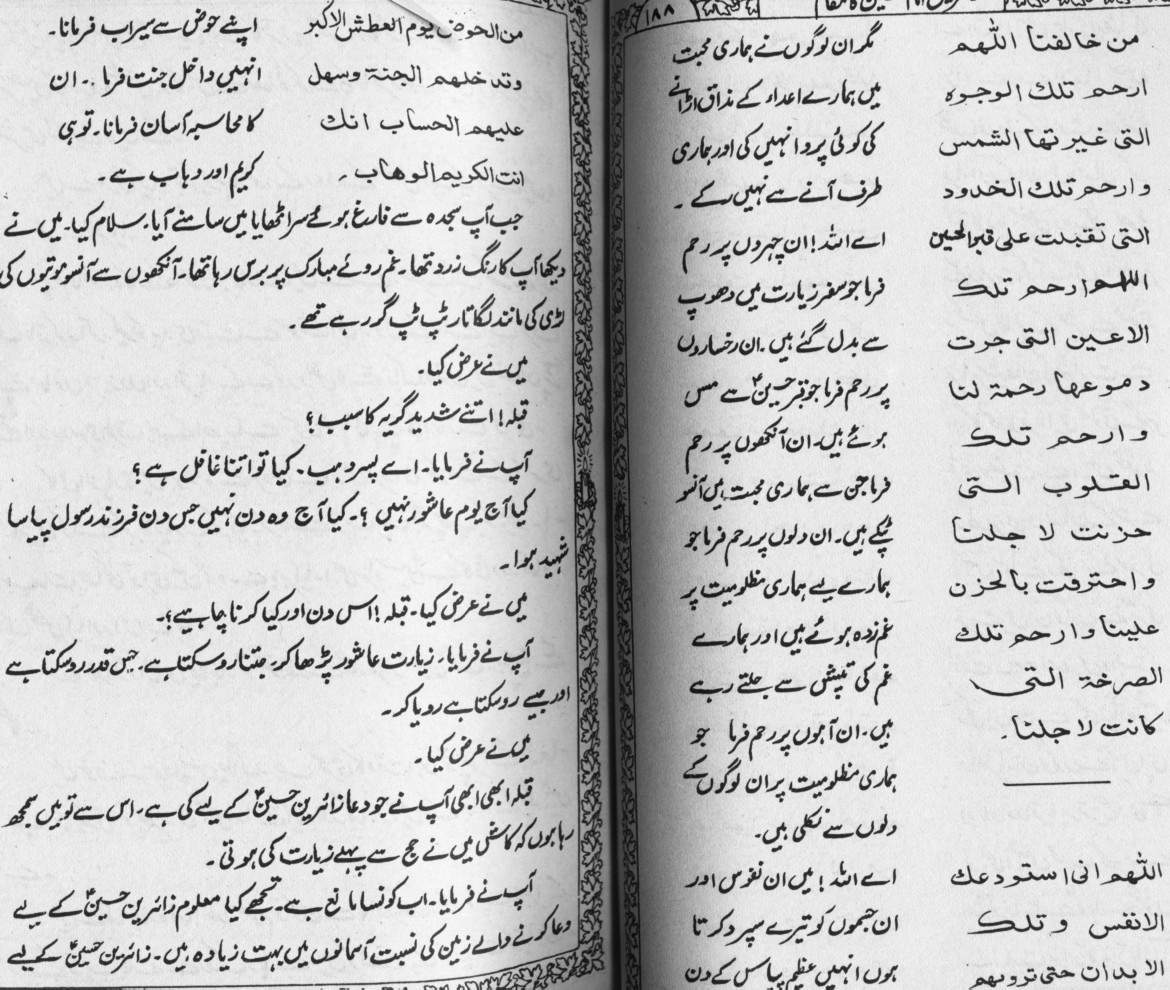 ۱۸۸
من خالفنا اللهم
ارحم تلك الوجوه
التى غيرتها الشمس
وارحم تلك الخدود
التى تقبلت على قبرالحسين
اللهم ارحم تلك
الاعين التى جرت
دموعها رحمة لنا
وارحم تلك
القلوب التى
حزنت لاجلنا
واحترقت بالحزن
علينا وارحم تلك
الصرخة التى
كانت لاجلنا۔
اللهم انى استودعك
الانفس وتلك
الابدان حتى ترويهم
مگر ان لوگوں نے ہماری محبت
میں ہمارے اعداء کے مذاق اڑانے
کی کوئی پروا نہیں کی اور ہماری
طرف آنے سے نہیں رکے۔
اے اللہ! ان چہروں پر رحم
فرما جو سفر زیارت میں دھوپ
سے بدل گئے ہیں۔ ان رخساروں
پر رحم فرما جو قبر حسینؑ سے مس
ہوئے ہیں۔ ان آنکھوں پر رحم
فرما جن سے ہماری محبت میں آنسو
ٹپکے ہیں۔ ان دلوں پر رحم فرما جو
ہمارے لیے ہماری مظلومیت پر
غم زدہ ہوئے ہیں اور ہمارے
غم کی تپش سے جلتے رہے
ہیں۔ ان آہوں پر رحم فرما جو
ہماری مظلومیت پر ان لوگوں کے
دلوں سے نکلی ہیں۔
اے اللہ! میں ان نفوس اور
ان جسموں کو تیرے سپرد کرتا
ہوں انہیں عظیم پیاس کے دن
من الحوض يوم العطش الاكبر
وتدخلهم الجنة وسهل
عليهم الحساب انك
انت الكريم الوهاب۔
اپنے حوض سے سیراب فرمانا۔
انہیں داخل جنت فرما۔ ان
کا محاسبہ آسان فرمانا۔ تو ہی
کریم اور وہاب ہے۔
جب آپ سجدہ سے فارغ ہوئے سر اٹھایا میں سامنے آیا۔ سلام کیا۔ میں نے
دیکھا آپ کا رنگ زرد تھا۔ غم روئے مبارک پر برس رہا تھا۔ آنکھوں سے آنسو موتیوں کی
لڑی کی مانند لگاتار ٹپ ٹپ گر رہے تھے۔
میں نے عرض کیا۔
قبلہ! اتنے شدید گریہ کا سبب؟
آپ نے فرمایا۔ اے پسر وہب۔ کیا تو اتنا غافل ہے؟
کیا آج یوم عاشور نہیں؟۔ کیا آج وہ دن نہیں جس دن فرزند رسول پیاسا
شہید ہوا۔
میں نے عرض کیا۔ قبلہ! اس دن اور کیا کرنا چاہیے؟۔
آپ نے فرمایا۔ زیارت عاشور پڑھا کر۔ جتنا رو سکتا ہے۔ جس قدر رو سکتا ہے
اور جیسے رو سکتا ہے رویا کر۔
میں نے عرض کیا۔
قبلہ ابھی ابھی آپ نے جو دعا زائرین حسینؑ کے لیے کی ہے۔ اس سے تو میں سمجھ
رہا ہوں کہ کاش میں نے حج سے پہلے زیارت کی ہوتی۔
آپ نے فرمایا۔ اب کونسا مانع ہے۔ تجھے کیا معلوم زائرین حسینؑ کے لیے
دعا کرنے والے زمین کی نسبت آسمانوں میں بہت زیادہ ہیں۔ زائرین حسینؑ کے لیے